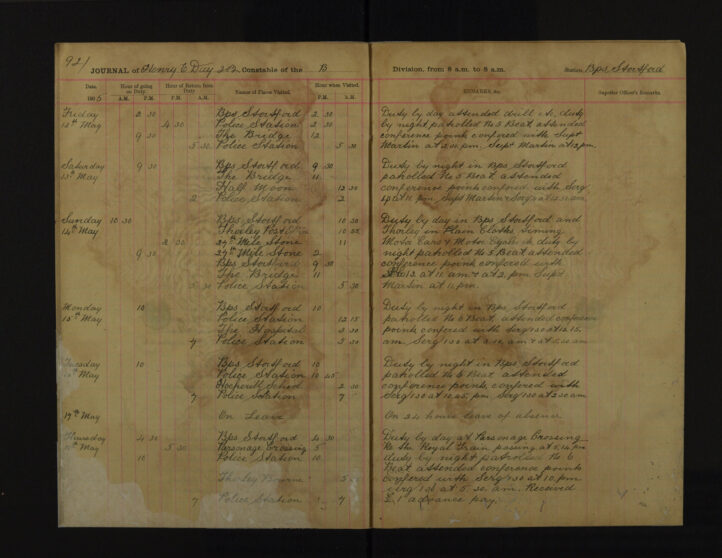 921
JOURNAL of Henry E Duy 212 Constable of the B Division, from 8 a.m. to 8 a.m. Station Bps Stortford
Date. Hour of going on Duty Hour of Return from Duty Names of Places Visited. Hour when Visited. REMARKS, &c. Superior Officer's Remarks.
A.M. P.M. A.M. P.M. P.M. A.M.
Friday 2 30 Bps Stortford 2 30 Duty by day attended drill &c, duty
12th May 4 30 Police Station 2 30 by night patrolled No 5 Beat attended
9 30 The Bridge 12 conference point confered with Supt
5 30 Police Station 5 30 Martin at pm. Supt Martin at 12 pm.
Saturday 9 30 Bps Stortford 9 30 Duty by night in Bps Stortford
13th May The Bridge 11 patrolled No 5 Beat attended
Half Moon 12 30 conference points confered with Serg
2 Police Station 2 at 11 pm. Supt Martin & Serg at 12.30 am
Sunday 10 30 Bps Stortford 10 30 Duty by day in Bps Stortford and
14th May Thorley Post 10 Thorley in Plain Cloths Timing
2 30 29th Mile Stone 11 Motor Cars & Motor Cycles &c duty by
9 30 29th Mile Stone 2 night patrolled No 5 Beat attended
Bps Stortford 9 30 conference points confered with
The Bridge 11 at 11 am & at 2 pm Supt
5 30 Police Station 5 30 Martin at 11 pm.
Monday 10 Bps Stortford 10 Duty by night in Bps Stortford
15th May Police Station 12 15 patrolled No 6 Beat, attended conference
The Hospital 3 30 points confered with Serg 130 at 12.15.
Police Station 5 30 am. Serg 130 at am & at 5.30 am
Tuesday 10 Bps Stortford 10 Duty by night in Bps Stortford
May Police Station 10 45 patrolled No 6 Beat attended
Hockerill School 2 30 conference points, confered with
7 Police Station 7 Serg 130 at 10.45. pm. Serg 130 at 2.30 am
17th May On Leave On 24 hours leave of absence
Thursday 4 30 Bps Stortford 4 30 Duty by day at Parsonage Crossing
May 5 30 Parsonage Crossing 5 Re the Royal Train passing at pm
10 Police Station 10 duty by night patrolled No 6
Beat attended conference points
Thorley Bourne 5 confered with Serg 130 at 10. pm.
Serg 130 at 5. 30. am. Received
7 Police Station 7 £1 advance pay.